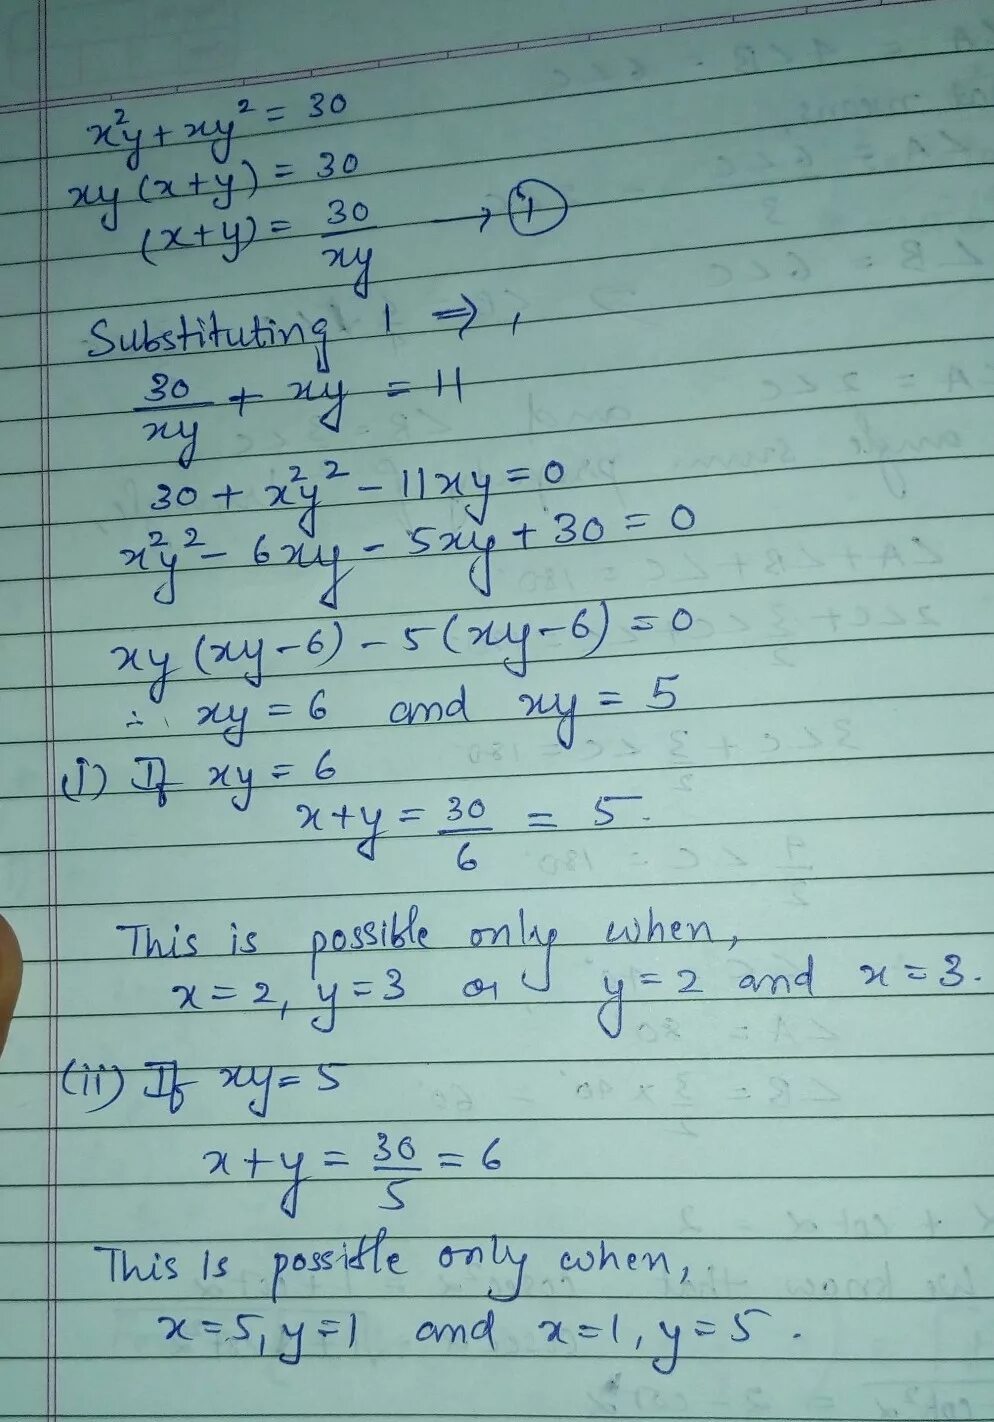 x²y + xy² = 30
xy (x+y) = 30
(x+y) = 30/xy → ①
Substituting 1 ⇒,
30/xy + xy = 11
30 + x²y² - 11xy = 0
x²y² - 6xy - 5xy + 30 = 0
xy (xy-6) - 5 (xy-6) = 0
∴ xy = 6 and xy = 5
(i) If xy = 6
x+y = 30/6 = 5.
This is possible only when,
x=2, y=3 or y=2 and x=3.
(ii) If xy=5
x+y = 30/5 = 6
This Is possible only when,
x=5, y=1 and x=1, y=5.